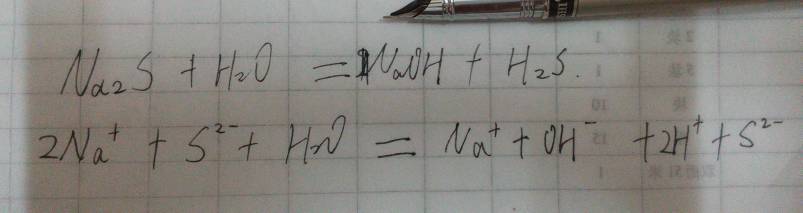 Na₂S + H₂O = NaOH + H₂S.
2Na⁺ + S²⁻ + H₂O = Na⁺ + OH⁻ + 2H⁺ + S²⁻